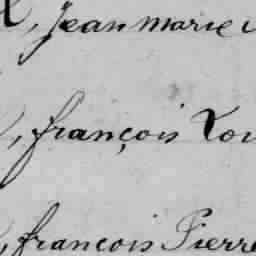 , Jean marie
, françois Lou
, françois Pierre